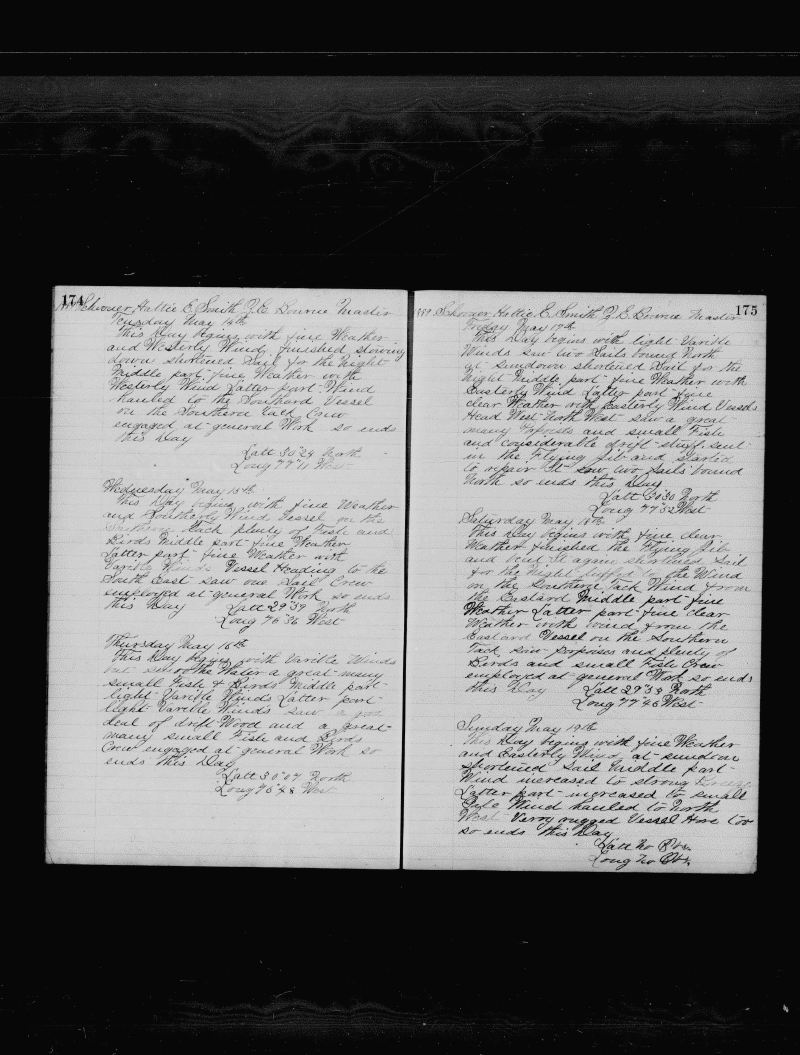 174
Schooner Hattie E Smith Z. E. Bourne Master
Tuesday May 14th
This Day begins with fine Weather
and Westerly Wind, finished stowing
down shortened Sail for the Night
Middle part fine Weather with
Westerly Wind Latter part Wind
hauled to the Southard Vessel
on the Southern Tack Crew
engaged at general Work so ends
this Day
Latt 30"29 North
Long 77"11 West
Wednesday May 15th
This Day begins with fine Weather
and Southerly Wind, Vessel on the
Southern Tack plenty of Fish and
Birds Middle part fine Weather
Latter part fine Weather with
Varible Winds Vessel Heading to the
South East saw one Sail Crew
employed at general Work, so ends
this Day Latt 29"39 North
Long 76"36 West
Thursday May 16th
This Day begins with Varible Winds
but smoothe Water a great many
small Fish & Birds Middle part
light Varible Winds Latter part
light Varible Winds saw a good
deal of drift Wood and a great
many small Fish and Birds
Crew engaged at general Work so
ends this Day
Latt 30"07 North
Long 76"48 West
175
1889 Schooner Hattie E. Smith Z. E. Bourne Master
Friday May 17th
This Day begins with light Varible
Winds saw two Sails bound North
at sundown shortened Sail for the
night Middle part fine Weather with
Easterly Wind Latter part fine
clear Weather with Easterly Wind Vessels
Head West North West saw a great
many Porpoises and small Fish
and considerable drift stuff, sent
in the Flying Jib and started
to repair it saw two Sails bound
North so ends this Day
Latt 30"30 North
Long 77"52 West
Saturday May 18th
This Day begins with fine clear
Weather finished the Flying Jib
and bent it again shortened Sail
for the Night luffed to the Wind
on the Southern Tack Wind from
the Eastard Middle part fine
Weather Latter part fine clear
Weather with wind from the
Eastard Vessel on the Southern
Tack saw Porpoises and plenty of
Birds and small Fish Crew
employed at general Work so ends
this Day Latt 29"39 North
Long 77"46 West
Sunday May 19th
This Day begins with fine Weather
and Easterly Wind, at sundown
shortened Sail Middle part
Wind increased to strong Breeze
Latter part increased to small
Gale Wind hauled to North
West Verry rugged Vessel Hove too
so ends this Day
Latt no Obs.
Long no Obs.